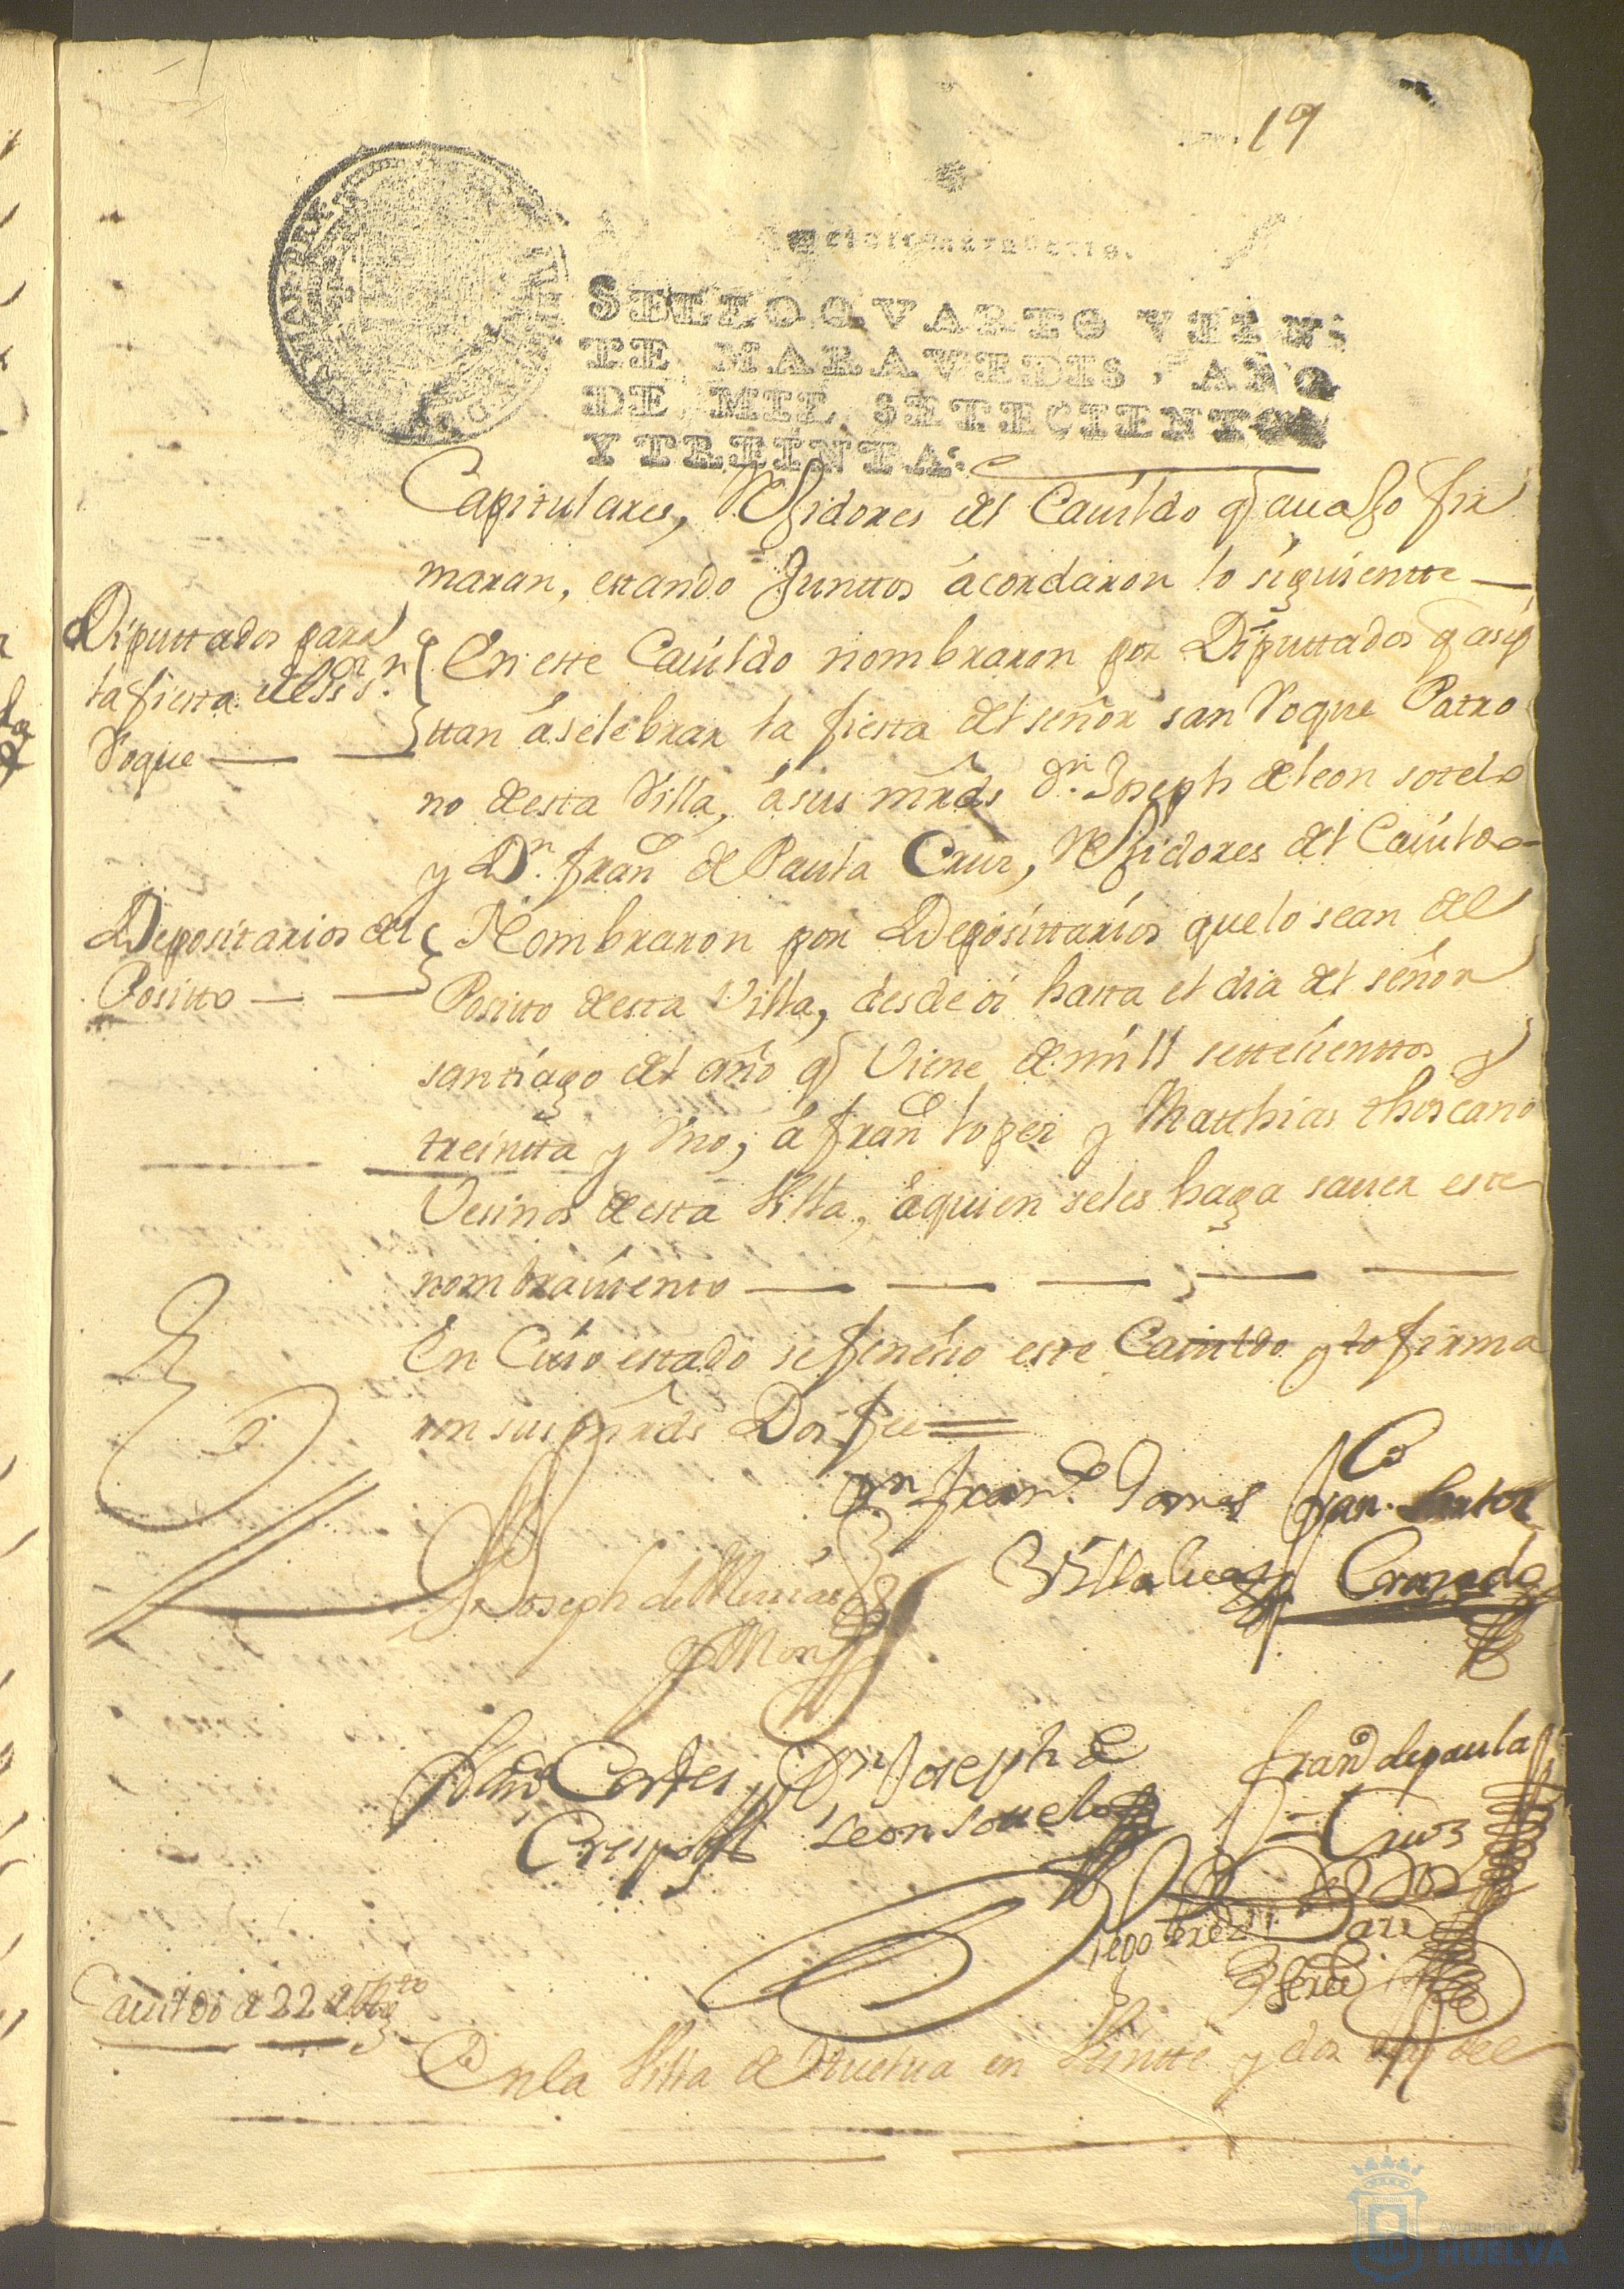 19
SELLO QVARTO, VEIN-
TE MARAVEDIS, AÑO
DE MIL SETECIENTOS
Y TREINTA.
Capitulares, Rexidores del Cauildo q̃ auaxo fir
maran, estando Junttos acordaron lo siguientte —
Diputtados para
la fiesta del Sr. Sn.
Roque —
En este Cauildo nombraron por Diputtados q̃ asis
ttan á selebrar la fiesta del señor san Roque Patro
no desta Villa, á sus mrds Dn. Joseph de leon sotelo
y Dn. Franco de Paula Cruz, Rexidores del Cauildo —
Depositarios del
Positto —
Nombraron por Deposittarios que lo sean del
Positto desta Villa, desde oi hasta el dia del señor
santiago del año q̃ Viene de mill settecienttos y
treintta y Vno, á Franco lopez y Matthias thoscano
Vesinos desta Villa, á quien se les haga sauer este
nombramiento —
En Cuio estado se fenecio este Cauildo y lo firma
ron sus mrds Doi fee =
Dn Franco Torres
Villalua
Juan
Joseph de
y Mon
Cortes
Crespo
Dn Joseph de
Leon Sottelo
Franco de paula
Cruz
Diego Perez
Cauildo de 22 de Agto
En la Villa de Huelua en Veintte y dos dias del
Ayuntamiento
HUELVA